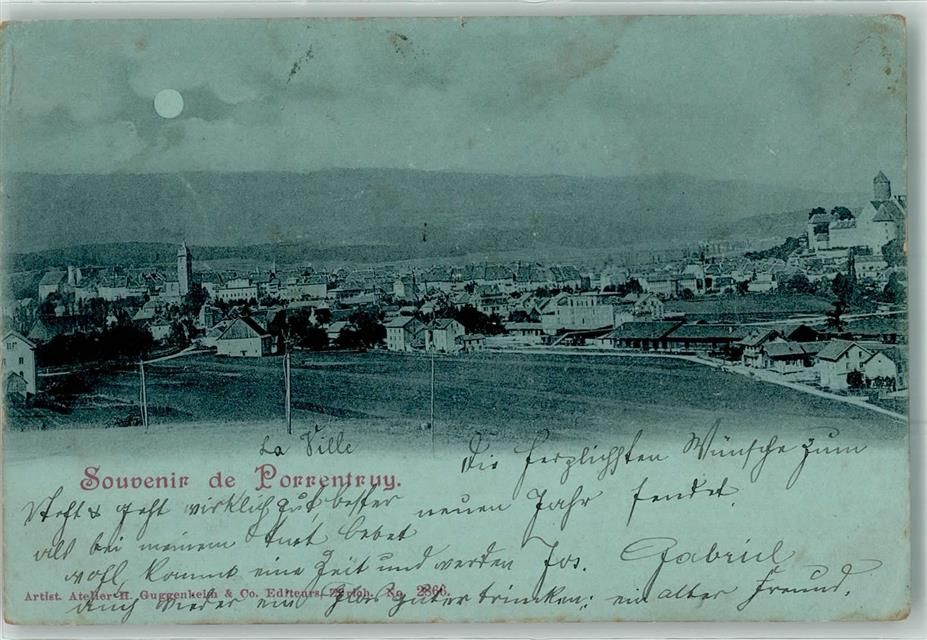 La Ville
Souvenir de Porrentruy.
Die herzlichsten Wünsche zum
neuen Jahr sendet
Jos. Gabriel
ein alter Freund.
geht wirklich besser
als bei meinem
wohl, kommt eine Zeit und werden
auch wieder ein Glas guter trinken;
Artist. Atelier H. Guggenheim & Co. Editeurs, Zürich. No. 2866.